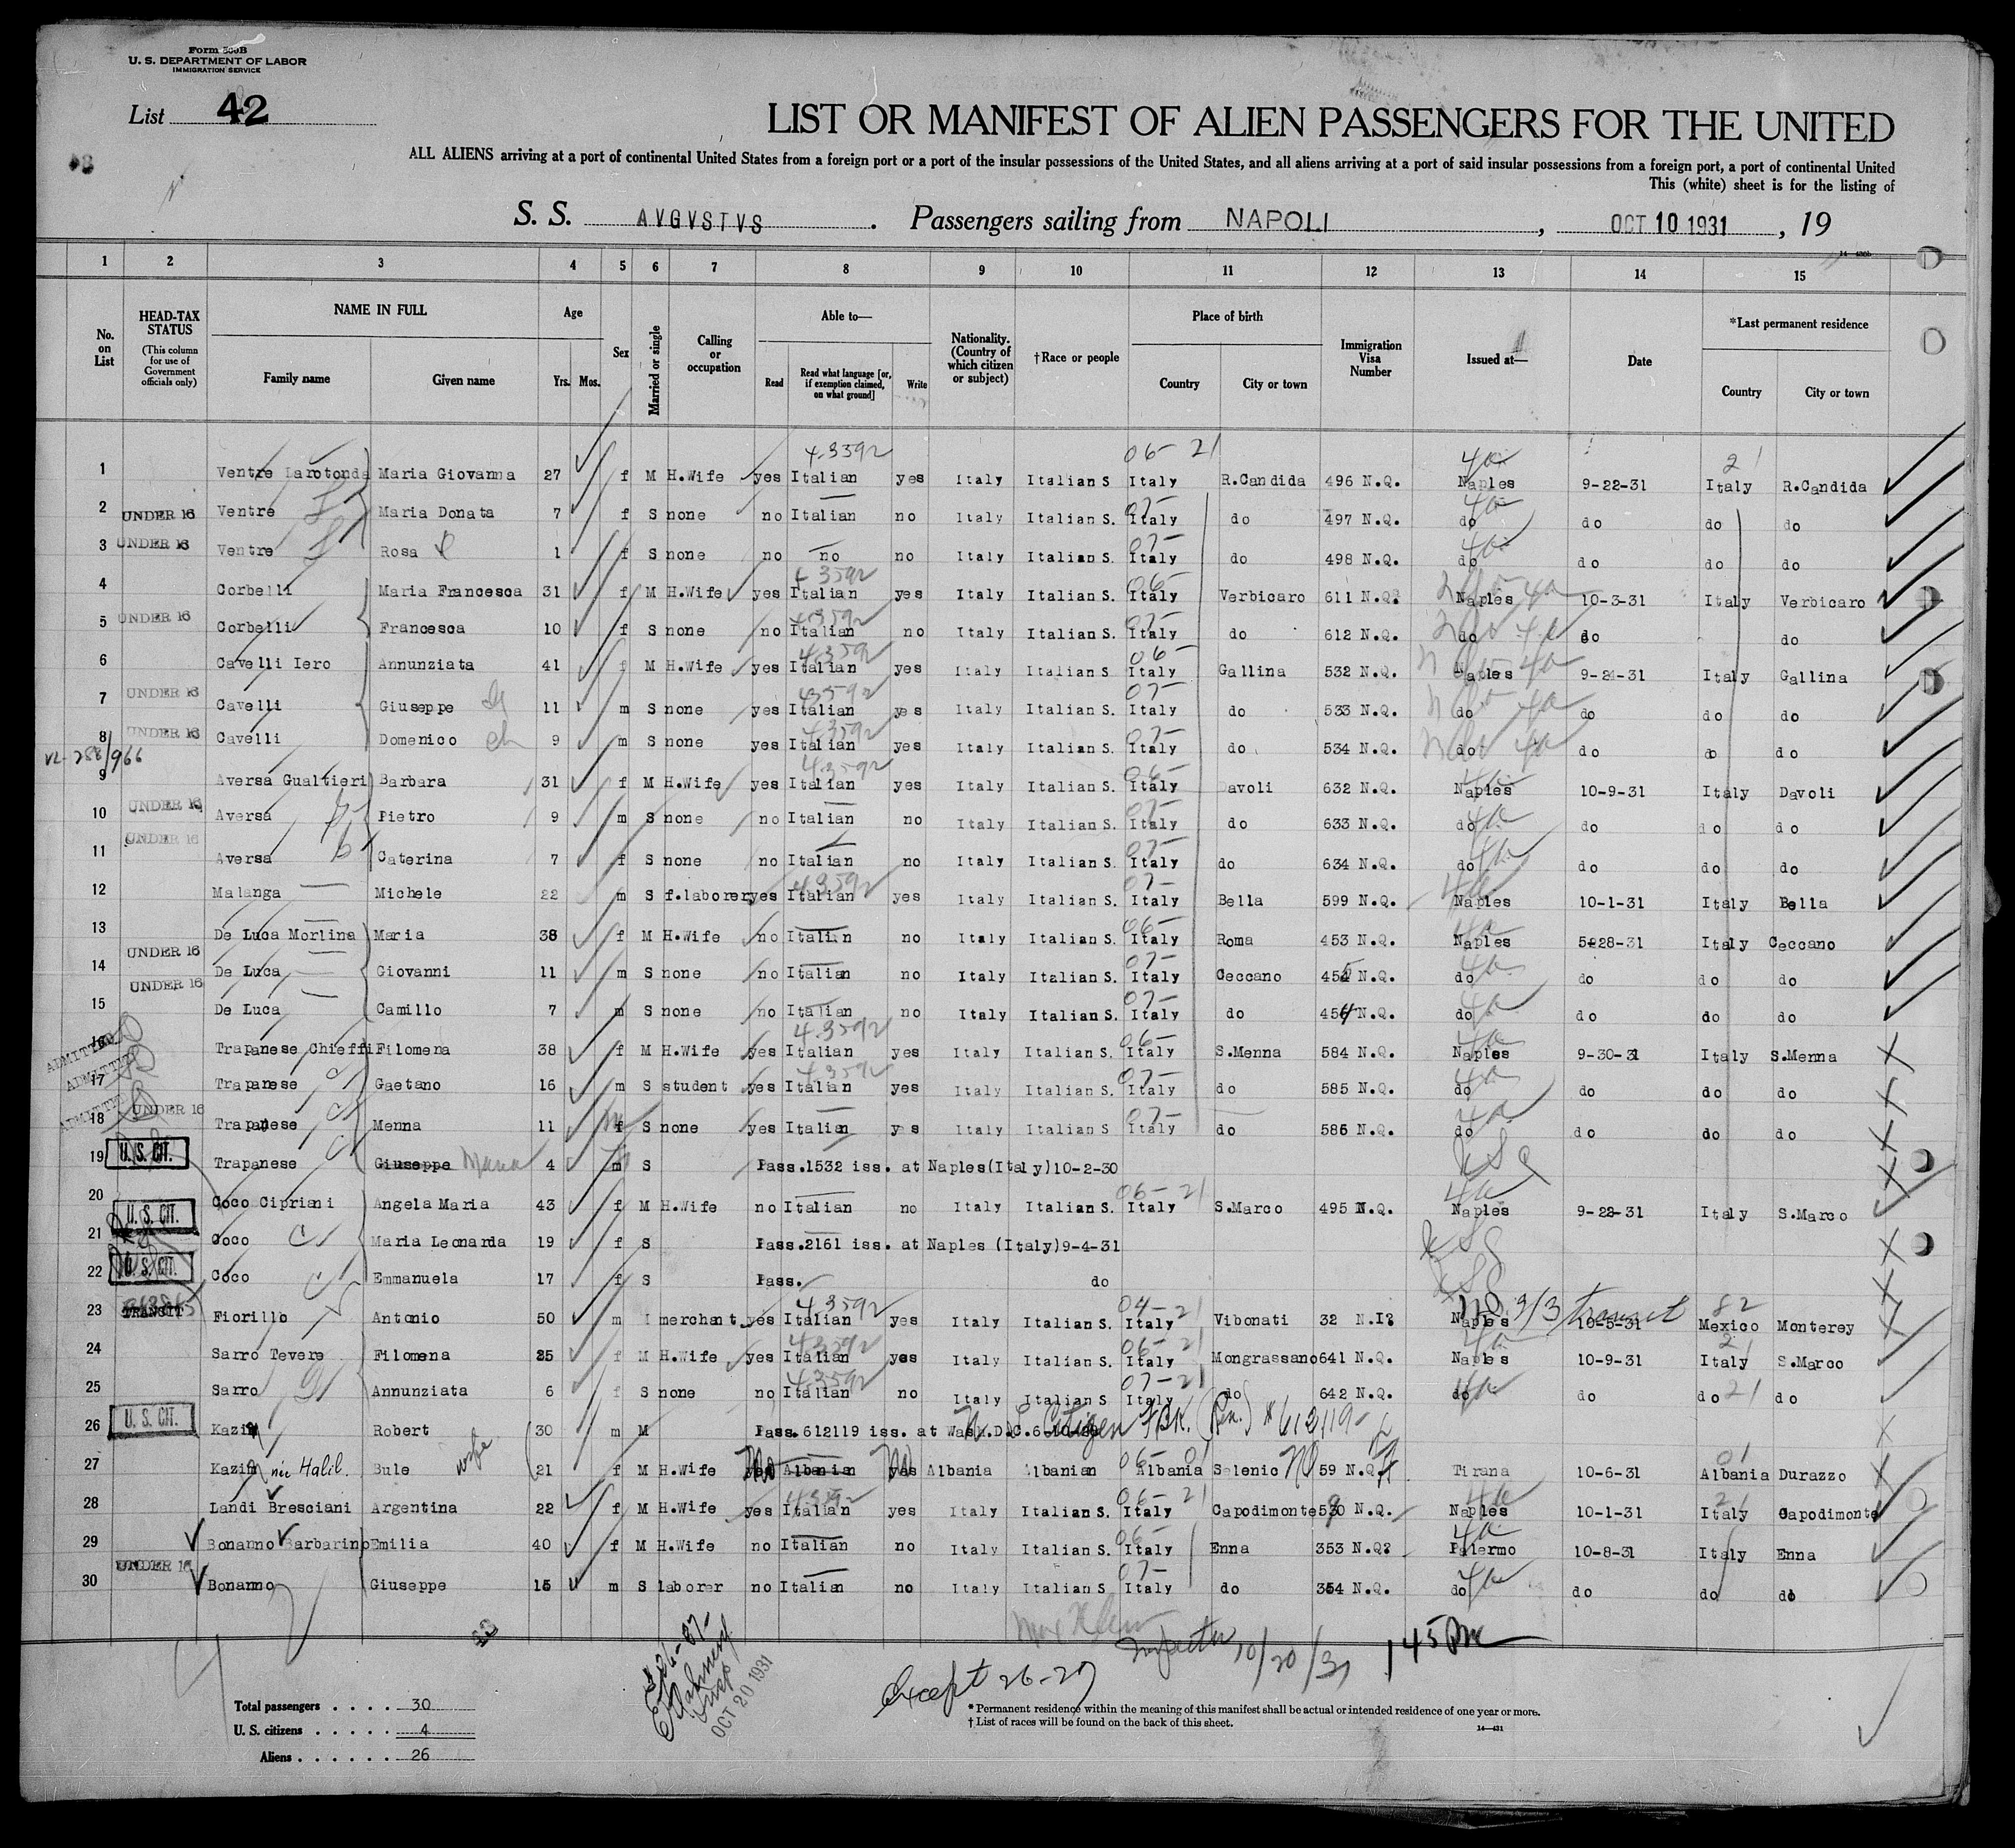 Form 500B
U. S. DEPARTMENT OF LABOR
IMMIGRATION SERVICE
List 42
LIST OR MANIFEST OF ALIEN PASSENGERS FOR THE UNITED
ALL ALIENS arriving at a port of continental United States from a foreign port or a port of the insular possessions of the United States, and all aliens arriving at a port of said insular possessions from a foreign port, a port of continental United
This (white) sheet is for the listing of
S. S. AVGVSTVS . Passengers sailing from NAPOLI , OCT 10 1931 , 19
1 2 3 4 5 6 7 8 9 10 11 12 13 14 15
No. on List HEAD-TAX STATUS (This column for use of Government officials only) NAME IN FULL Family name Given name Age Yrs. Mos. Sex Married or single Calling or occupation Able to— Read Read what language [or, if exemption claimed, on what ground] Write Nationality. (Country of which citizen or subject) †Race or people Place of birth Country City or town Immigration Visa Number Issued at— Date *Last permanent residence Country City or town
1 Ventre Larotonda Maria Giovanna 27 f M H.Wife yes Italian yes Italy Italian S Italy R.Candida 496 N.Q. Naples 9-22-31 Italy R.Candida
2 UNDER 16 Ventre Maria Donata 7 f S none no Italian no Italy Italian S. Italy do 497 N.Q. do do do do
3 UNDER 16 Ventre Rosa 1 f S none no no no Italy Italian S. Italy do 498 N.Q. do do do do
4 Corbelli Maria Francesca 31 f M H.Wife yes Italian yes Italy Italian S. Italy Verbicaro 611 N.Q. Naples 10-3-31 Italy Verbicaro
5 UNDER 16 Corbelli Francesca 10 f S none no Italian no Italy Italian S. Italy do 612 N.Q. do do do
6 Cavelli Iero Annunziata 41 f M H.Wife yes Italian yes Italy Italian S Italy Gallina 532 N.Q. Naples 9-21-31 Italy Gallina
7 UNDER 16 Cavelli Giuseppe 11 m S none yes Italian yes Italy Italian S. Italy do 533 N.Q. do do do do
8 UNDER 16 Cavelli Domenico 9 m S none yes Italian yes Italy Italian S. Italy do 534 N.Q. do do do do
9 Aversa Gualtieri Barbara 31 f M H.Wife yes Italian yes Italy Italian S. Italy Davoli 632 N.Q. Naples 10-9-31 Italy Davoli
10 UNDER 16 Aversa Pietro 9 m S none no Italian no Italy Italian S. Italy do 633 N.Q. do do do do
11 UNDER 16 Aversa Caterina 7 f S none no Italian no Italy Italian S. Italy do 634 N.Q. do do do do
12 Malanga Michele 22 m S f.laborer yes Italian yes Italy Italian S. Italy Bella 599 N.Q. Naples 10-1-31 Italy Bella
13 De Luca Morlina Maria 38 f M H.Wife no Italian no Italy Italian S. Italy Roma 453 N.Q. Naples 5-28-31 Italy Ceccano
14 UNDER 16 De Luca Giovanni 11 m S none no Italian no Italy Italian S. Italy Ceccano 455 N.Q. do do do do
15 UNDER 16 De Luca Camillo 7 m S none no Italian no Italy Italian S. Italy do 454 N.Q. do do do do
16 ADMITTED Trapanese Chieffi Filomena 38 f M H.Wife yes Italian yes Italy Italian S. Italy S.Menna 584 N.Q. Naples 9-30-31 Italy S.Menna
17 ADMITTED Trapanese Gaetano 16 m S student yes Italian yes Italy Italian S. Italy do 585 N.Q. do do do do
18 ADMITTED UNDER 16 Trapanese Menna 11 f S none yes Italian yes Italy Italian S Italy do 586 N.Q. do do do do
19 U. S. CIT. Trapanese Giuseppe Maria 4 m S Pass.1532 iss. at Naples(Italy)10-2-30
20 Coco Cipriani Angela Maria 43 f M H.Wife no Italian no Italy Italian S. Italy S.Marco 495 N.Q. Naples 9-22-31 Italy S.Marco
21 U. S. CIT. Coco Maria Leonarda 19 f S Pass.2161 iss. at Naples (Italy)9-4-31
22 U. S. CIT. Coco Emmanuela 17 f S Pass. do
23 TRANSIT Fiorillo Antonio 50 m merchant yes Italian yes Italy Italian S. Italy Vibonati 32 N.I. Naples 3/3 transit 10-5-31 Mexico Monterey
24 Sarro Tevere Filomena 25 f M H.Wife yes Italian yes Italy Italian S. Italy Mongrassano 641 N.Q. Naples 10-9-31 Italy S.Marco
25 Sarro Annunziata 6 f S none no Italian no Italy Italian S Italy do 642 N.Q. do do do do
26 U. S. CIT. Kazim Robert 30 m M Pass.612119 iss. at Wash.D.C. Citizen
27 Kazim née Halil. Bule wife 21 f M H.Wife yes No Albanian yes No Albania Albanian Albania Selenic 59 N.Q. Tirana 10-6-31 Albania Durazzo
28 Landi Bresciani Argentina 22 f M H.Wife yes Italian yes Italy Italian S. Italy Capodimonte 530 N.Q. Naples 10-1-31 Italy Capodimonte
29 Bonanno Barbarino Emilia 40 f M H.Wife no Italian no Italy Italian S. Italy Enna 353 N.Q. Palermo 10-8-31 Italy Enna
30 UNDER 16 Bonanno Giuseppe 15 m S laborer no Italian no Italy Italian S Italy do 354 N.Q. do do do do
Inspector 10/20/31 1 45 PM
Except 26-27
OCT 20 1931
Total passengers . . . . 30
U. S. citizens . . . . . 4
Aliens . . . . . . 26
* Permanent residence within the meaning of this manifest shall be actual or intended residence of one year or more.
† List of races will be found on the back of this sheet.
14—431